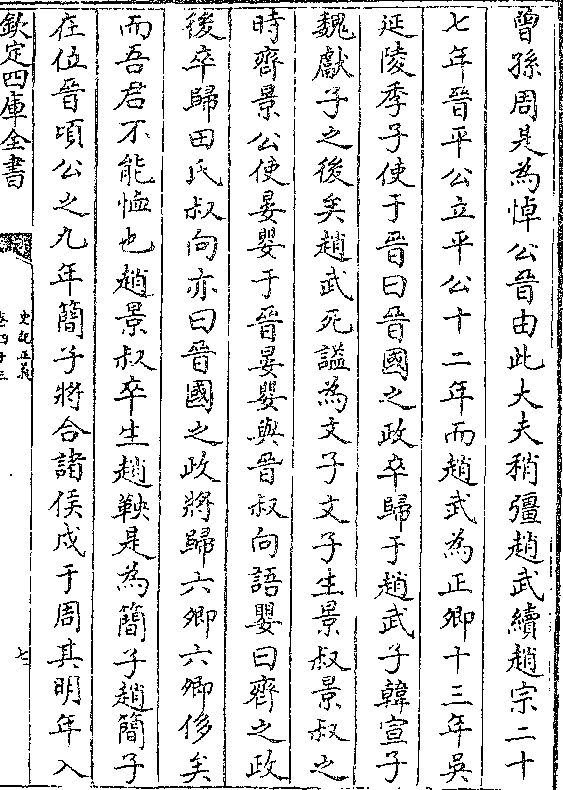 曾孫周是為悼公晉由此大夫稍彊趙武續趙宗二十
七年晉平公立平公十二年而趙武為正卿十三年吳
延陵季子使于晉曰晉國之政卒歸于趙武子韓宣子
魏獻子之後矣趙武死諡為文子文子生景叔景叔之
時齊景公使晏嬰于晉晏嬰與晉叔向語嬰曰齊之政
後卒歸田氏叔向亦曰晉國之政將歸六卿六卿侈矣
而吾君不能恤也趙景叔卒生趙鞅是為簡子趙簡子
在位晉頃公之九年簡子將合諸侯戍于周其明年入
欽定四庫全書
史記正義
卷四十三
七